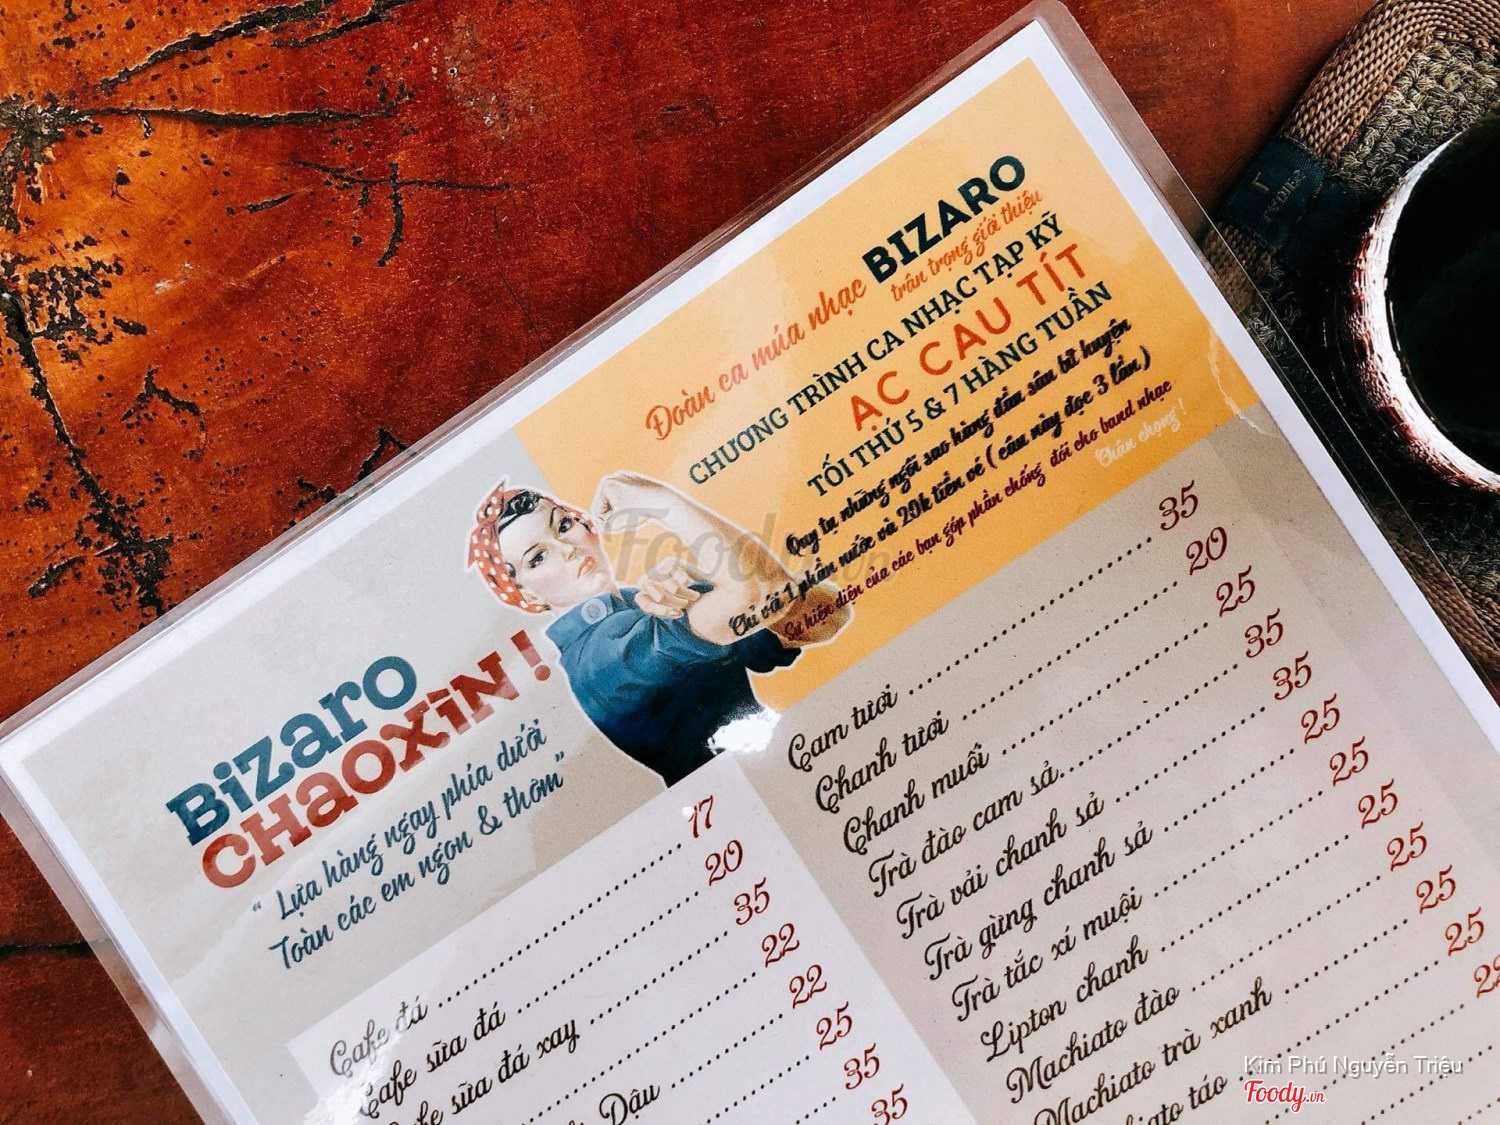 Đoàn ca múa nhạc BIZARO
trân trọng giới thiệu
CHƯƠNG TRÌNH CA NHẠC TẠP KỸ
ẠC CAU TÍT
TỐI THỨ 5 & 7 HÀNG TUẦN
Quy tụ những ngôi sao hàng đầu sân bít huyện
Chỉ với 1 phần nước và 29k tiền vé ( câu này đọc 3 lần )
Sự hiện diện của các bạn góp phần chống đói cho band nhạc
Chán chọng !
Bizaro
CHaoxiN !
“ Lựa hàng ngay phía dưới
Toàn các em ngon & thơm”
Cafe đá 17
Cafe sữa đá 20
Cafe sữa đá xay 35
22
Dâu 22
25
35
35
Cam tươi 35
Chanh tươi 20
Chanh muối 25
Trà đào cam sả 35
Trà vải chanh sả 35
Trà gừng chanh sả 25
Trà tắc xí muội 25
Lipton chanh 25
Machiato đào 25
Machiato trà xanh 25
táo 25
Foody.vn
Kim Phú Nguyễn Triệu
Foody.vn